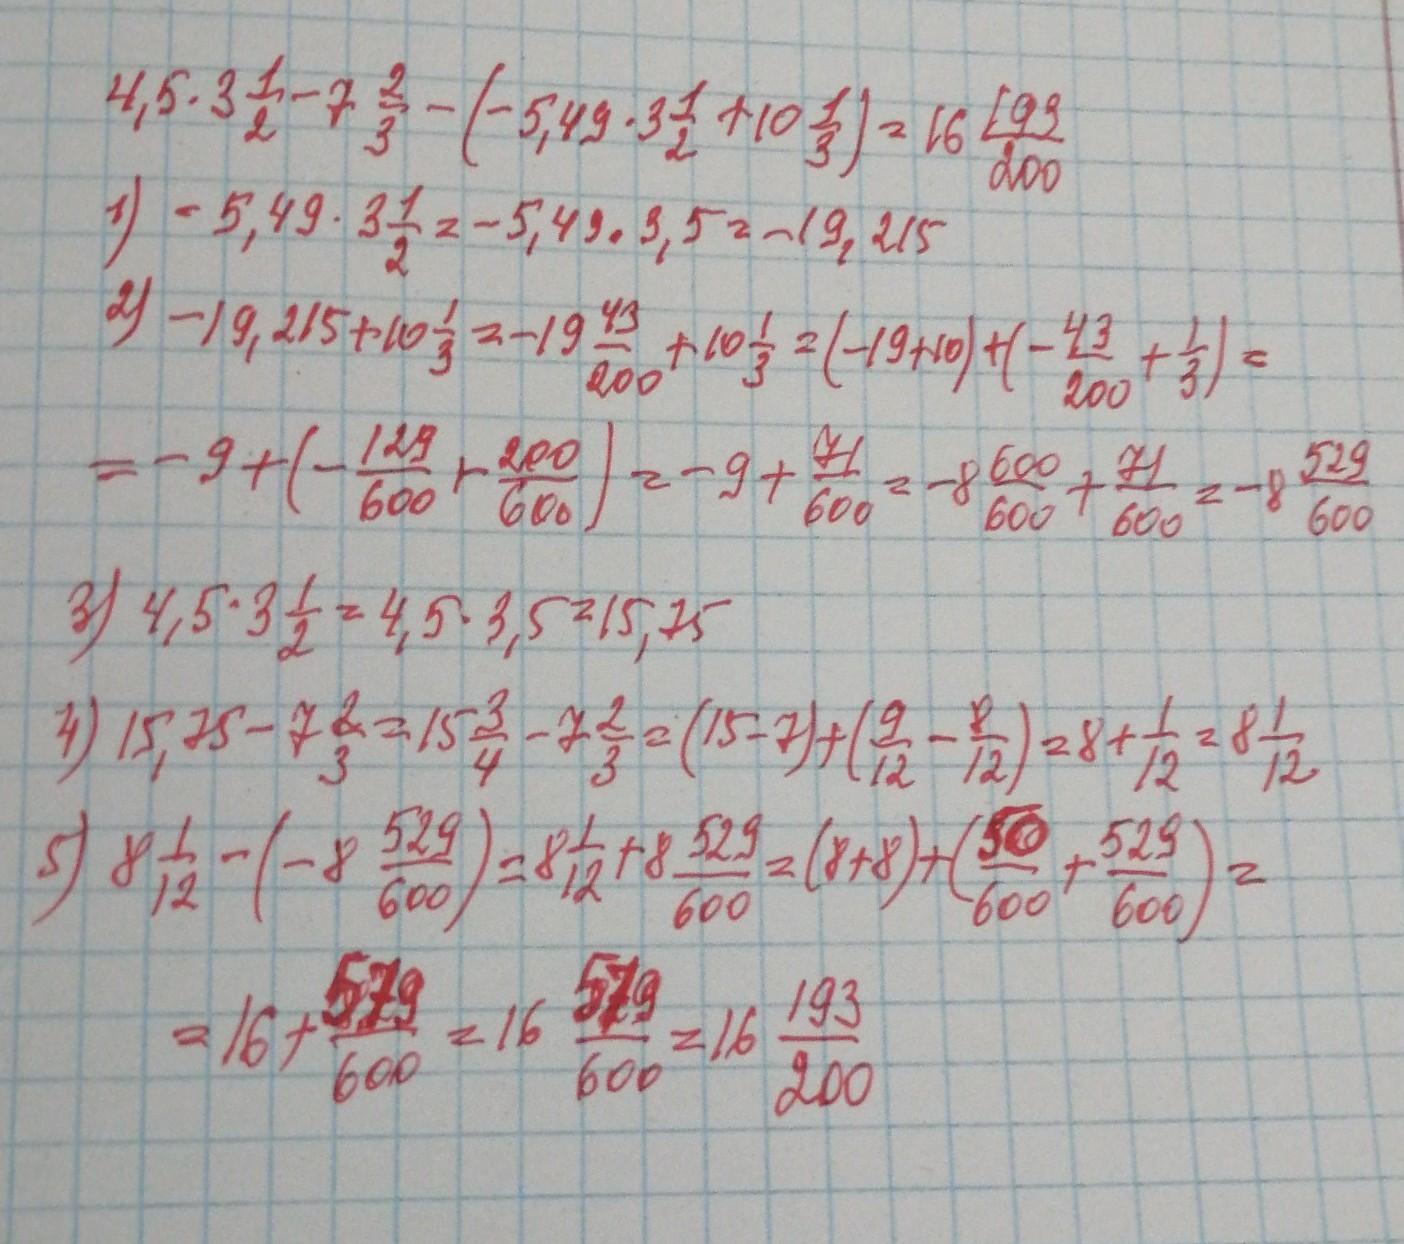 4,5·3 1/2 - 7 2/3 - (-5,49·3 1/2 + 10 1/3) = 16 193/200
1) -5,49·3 1/2 = -5,49·3,5 = -19,215
2) -19,215 + 10 1/3 = -19 43/200 + 10 1/3 = (-19+10) + (-43/200 + 1/3) =
= -9 + (-129/600 + 200/600) = -9 + 71/600 = -8 600/600 + 71/600 = -8 529/600
3) 4,5·3 1/2 = 4,5·3,5 = 15,75
4) 15,75 - 7 2/3 = 15 3/4 - 7 2/3 = (15-7) + (9/12 - 8/12) = 8 + 1/12 = 8 1/12
5) 8 1/12 - (-8 529/600) = 8 1/12 + 8 529/600 = (8+8) + (50/600 + 529/600) =
= 16 + 579/600 = 16 579/600 = 16 193/200